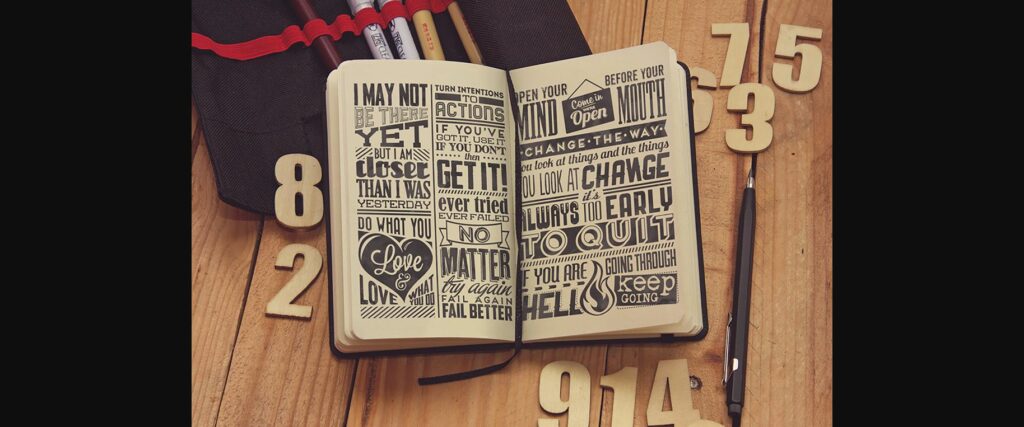 I MAY NOT
BE THERE
YET
BUT I AM
closer
THAN I WAS
YESTERDAY
DO WHAT YOU
Love
&
LOVE WHAT
YOU DO
TURN INTENTIONS
TO
ACTIONS
IF YOU'VE
GOT IT, USE IT
IF YOU DON'T
then
GET IT!
ever tried
EVER FAILED
NO
MATTER
try again
FAIL AGAIN
FAIL BETTER
OPEN YOUR
MIND
Come in
Open
BEFORE YOUR
MOUTH
CHANGE·THE·WAY
you look at things and the things
YOU LOOK AT CHANGE
ALWAYS it's TOO EARLY
TO QUIT
IF YOU ARE
GOING THROUGH
HELL
keep
GOING
7
5
6
3
8
2
9
1
4